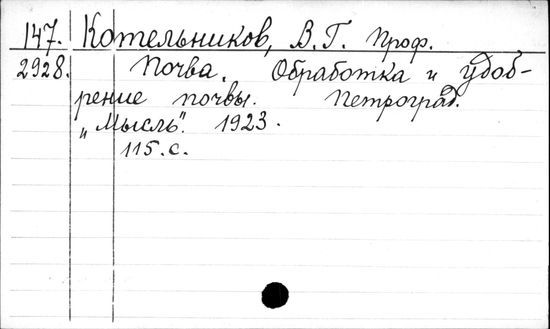 147. Котельников, В. Г. Проф.
2928. Почва. Обработка и удоб-
рение почвы. Петроград.
„Мысль". 1923.
115. с.